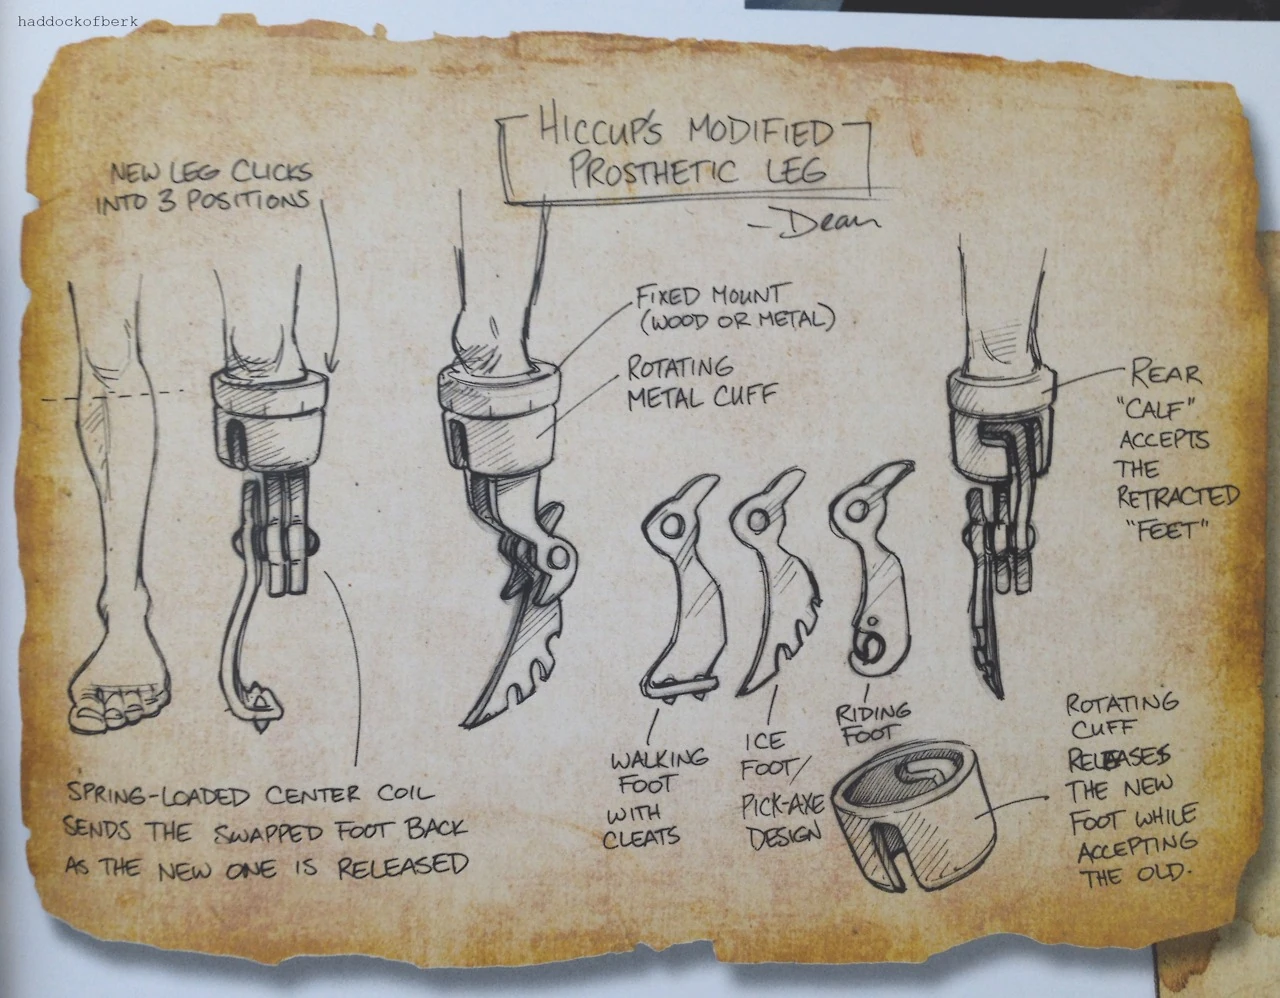 haddockofberk
HICCUP'S MODIFIED
PROSTHETIC LEG
-Dean
NEW LEG CLICKS
INTO 3 POSITIONS
FIXED MOUNT
(WOOD OR METAL)
ROTATING
METAL CUFF
REAR
"CALF"
ACCEPTS
THE
RETRACTED
"FEET"
WALKING
FOOT
WITH
CLEATS
ICE
FOOT/
PICK-AXE
DESIGN
RIDING
FOOT
ROTATING
CUFF
RELEASES
THE NEW
FOOT WHILE
ACCEPTING
THE OLD.
SPRING-LOADED CENTER COIL
SENDS THE SWAPPED FOOT BACK
AS THE NEW ONE IS RELEASED